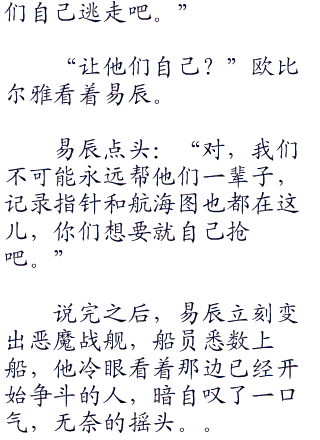 们自己逃走吧。”
“让他们自己？”欧比
尔雅看着易辰。
易辰点头：“对，我们
不可能永远帮他们一辈子，
记录指针和航海图也都在这
儿，你们想要就自己抢
吧。”
说完之后，易辰立刻变
出恶魔战舰，船员悉数上
船，他冷眼看着那边已经开
始争斗的人，暗自叹了一口
气，无奈的摇头。。